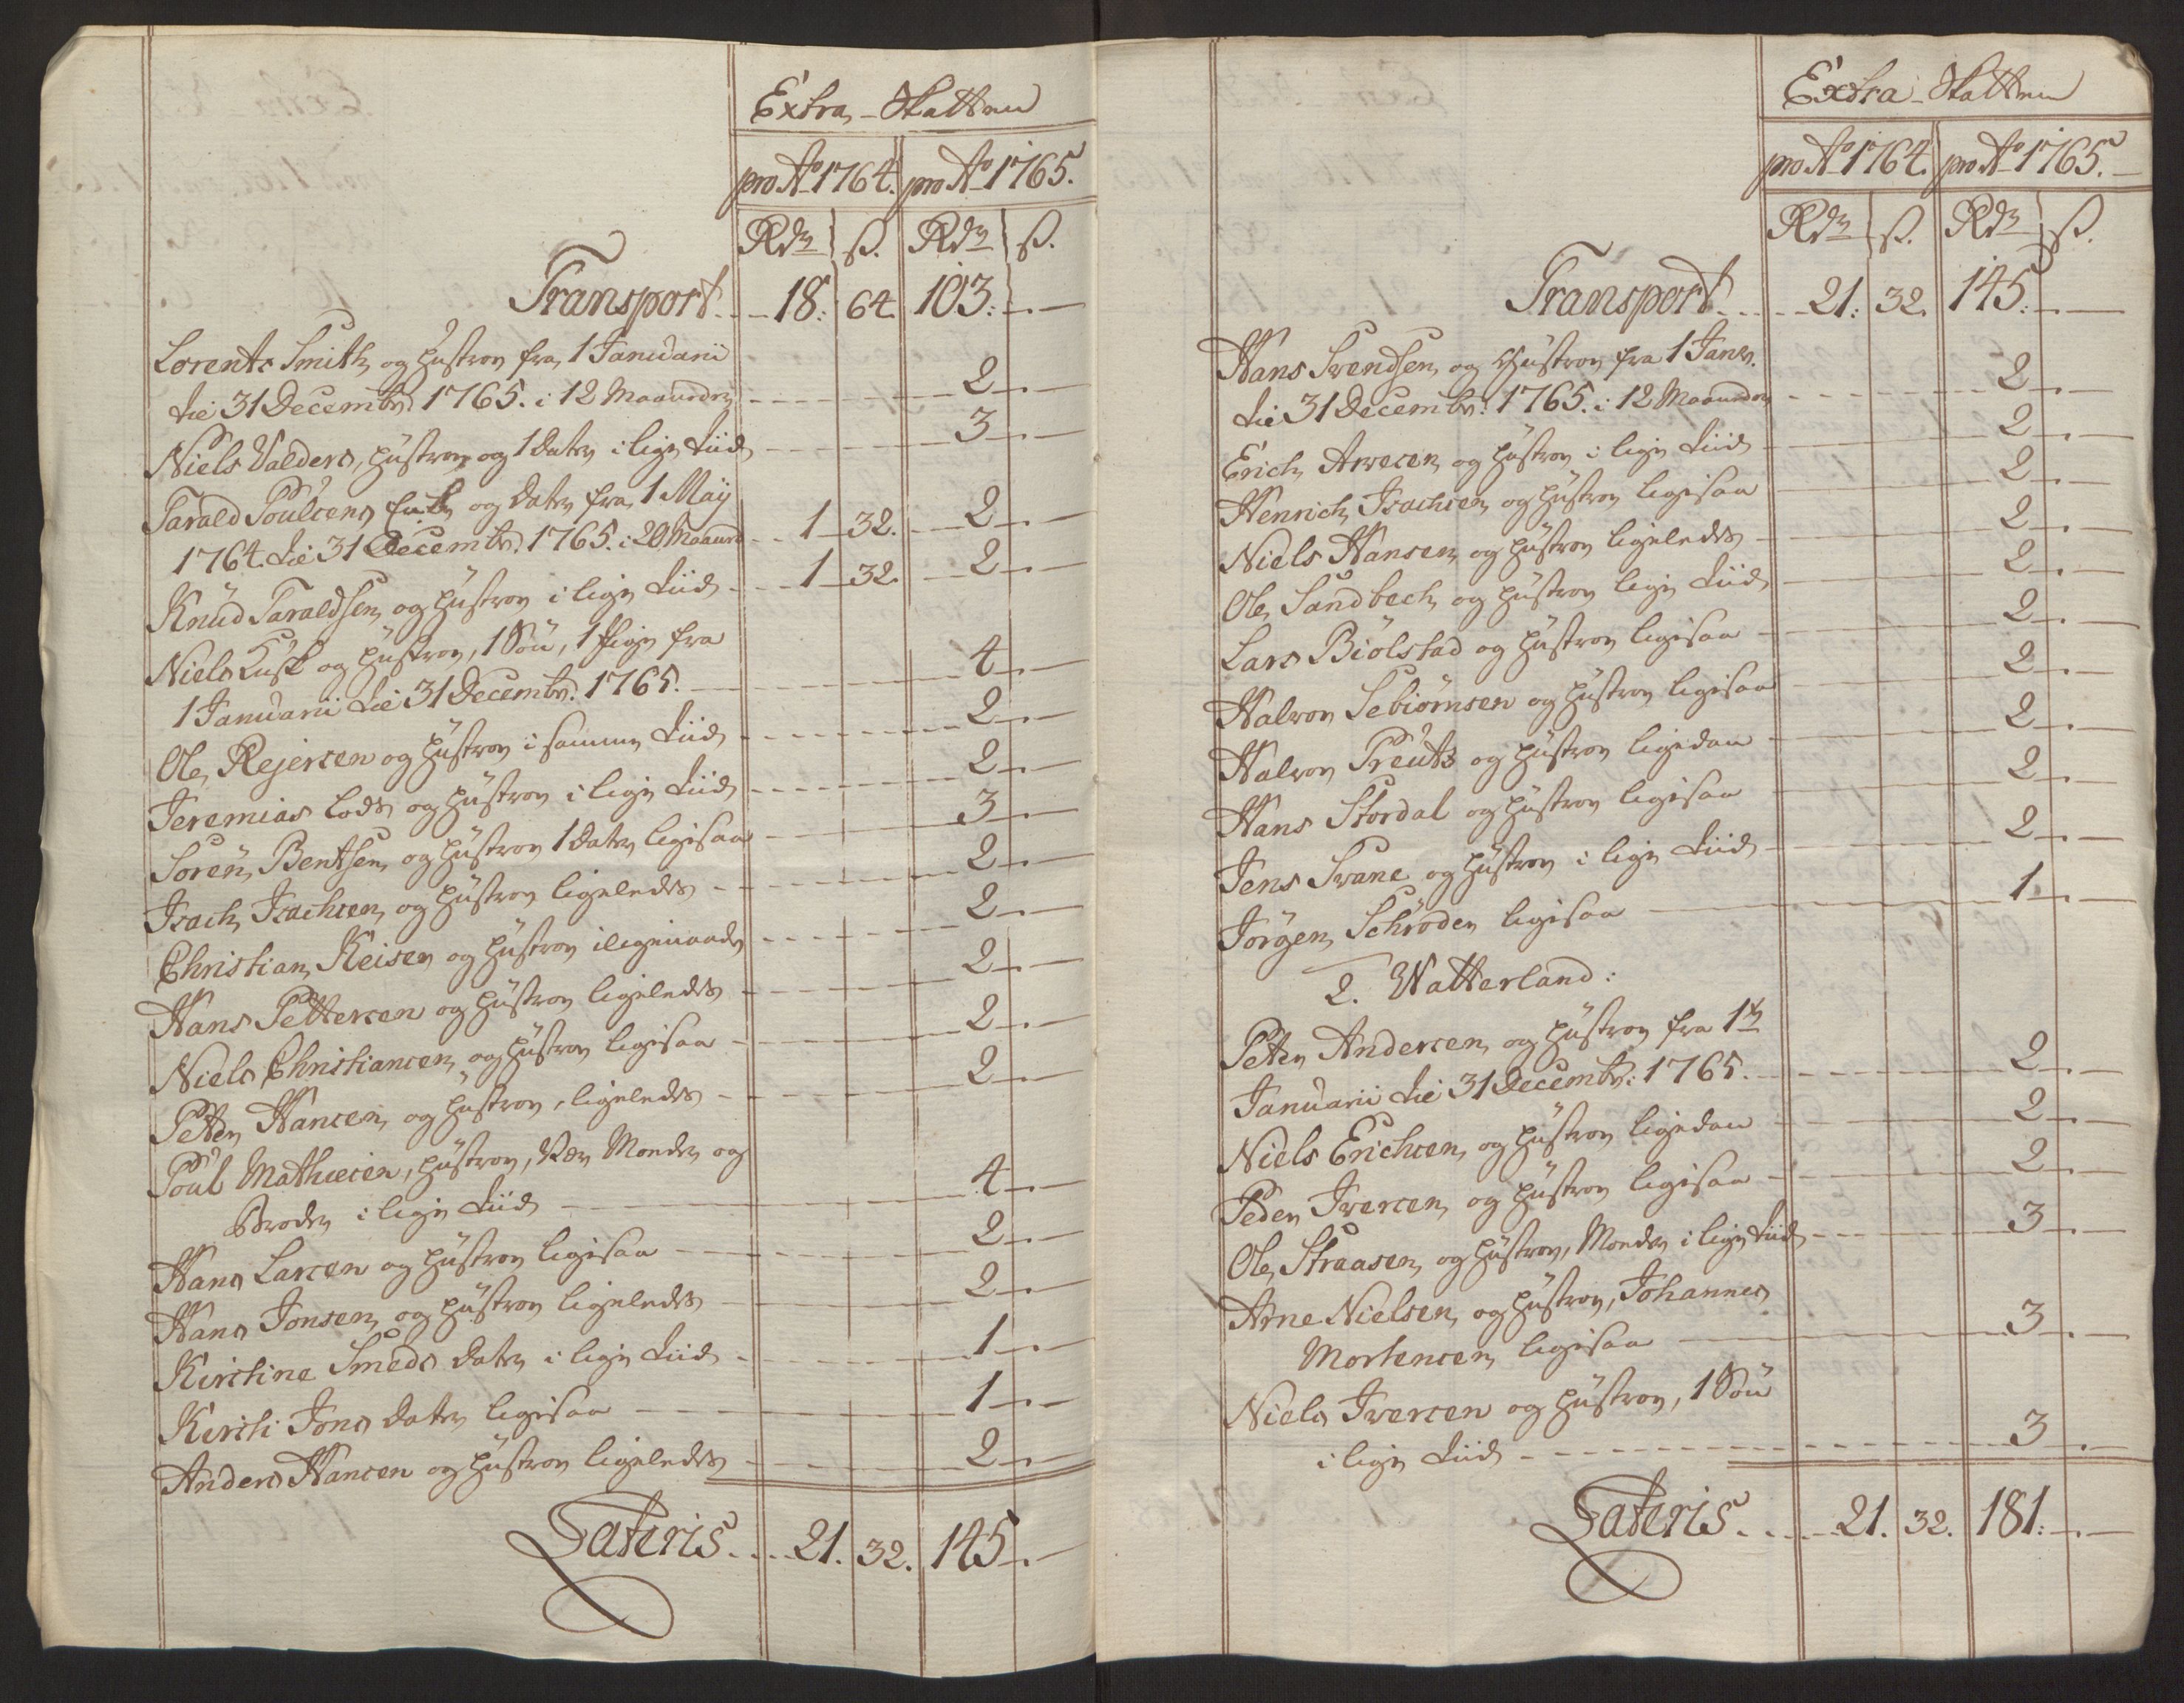 Extra-Skatten
pro Ao 1764. pro Ao 1765.
Rdr ß. Rdr ß.
Transport - - - 18: 64. 103: - . -
Lorents Smith og Hustrou fra 1 Januarii
til 31 Decembr: 1765. i 12 Maaneder - - - 2 - . -
Niels Valders, Hustrou og 1 Dater i lige Tiid - - - 3 - . -
Tarald Poulsens Enke og Dater fra 1 Maÿ
1764. til 31 Decembr: 1765. i 20 Maaned - - 1 - 32. - - 2 - . -
Knud Taraldsen og Hustrou i lige Tiid - - - 1 - 32. - - 2 - . -
Niels Kusk og Hustrou, 1 Søn, 1 Pige fra
1 Januarii til 31 Decembr: 1765. - - - 4 - . -
Ole Rejersen og Hustrou i samme Tiid - - - 2 - . -
Jeremias Lods og Hustrou i lige Tiid - - - 2 - . -
Sören Bentsen og Hustrou 1 Dater ligesaa - - - 3 - . -
Isach Isachsen og Hustrou ligeledes - - - 2 - . -
Christian Keiser og Hustrou i ligemaade - - - 2 - . -
Hans Pettersen og Hustrou ligeledes - - - 2 - . -
Niels Christiansen og Hustrou ligesaa - - - 2 - . -
Petter Hansen og Hustrou, ligeledes - - - 2 - . -
Poul Mathiesen, Hustrou, Moder og
Broder i lige Tiid - - - 4 - . -
Hans Larsen og Hustrou ligesaa - - - 2 - . -
Hans Jonsen og Hustrou ligeledes - - - 2 - . -
Kirstine Smeds Dater i lige Tiid - - - 1 - . -
Kirsti Jons Dater ligesaa - - - 1 - . -
Anders Hansen og Hustrou ligeledes - - - 2 - . -
Lateris. - - - 21. 32. 145 - . -
Extra-Skatten
pro Ao 1764. pro Ao 1765. -
Rdr ß. Rdr ß.
Transport - - - 21: 32. 145: - . -
Hans Svendsen og Hustrou fra 1 Janr.
til 31 Decembr: 1765. i 12 Maaneder - - - 2 - . -
Erich Arvesen og Hustrou i lige Tiid - - - 2 - . -
Henrich Isachsen og Hustrou ligesaa - - - 2 - . -
Niels Hansen og Hustrou ligeledes - - - 2 - . -
Ole Sandbech og Hustrou lige Tiid - - - 2 - . -
Lars Biölstad og Hustrou ligesaa - - - 2 - . -
Halvor Sebiörnsen og Hustrou ligesaa - - - 2 - . -
Halvor Preuts og Hustrou ligedan - - - 2 - . -
Hans Stordal og Hustrou ligesaa - - - 2 - . -
Jens Svane og Hustrou i lige Tiid - - - 2 - . -
Jörgen Schröder ligesaa - - - 1 - . -
2. Watterland:
Petter Andersen og Hustrou fra 1te
Januarii til 31 Decembr: 1765. - - - 2 - . -
Niels Erichsen og Hustrou ligedan - - - 2 - . -
Peder Iversen og Hustrou ligesaa - - - 2 - . -
Ole Straasen og Hustrou, Moder i lige Tiid - - - 3 - . -
Arne Nielsen og Hustrou, Johannes
Mortensen ligesaa - - - 3 - . -
Niels Iversen og Hustrou, 1 Søn
i lige Tiid - - - 3 - . -
Lateris. - - - 21. 32. 181: - . -